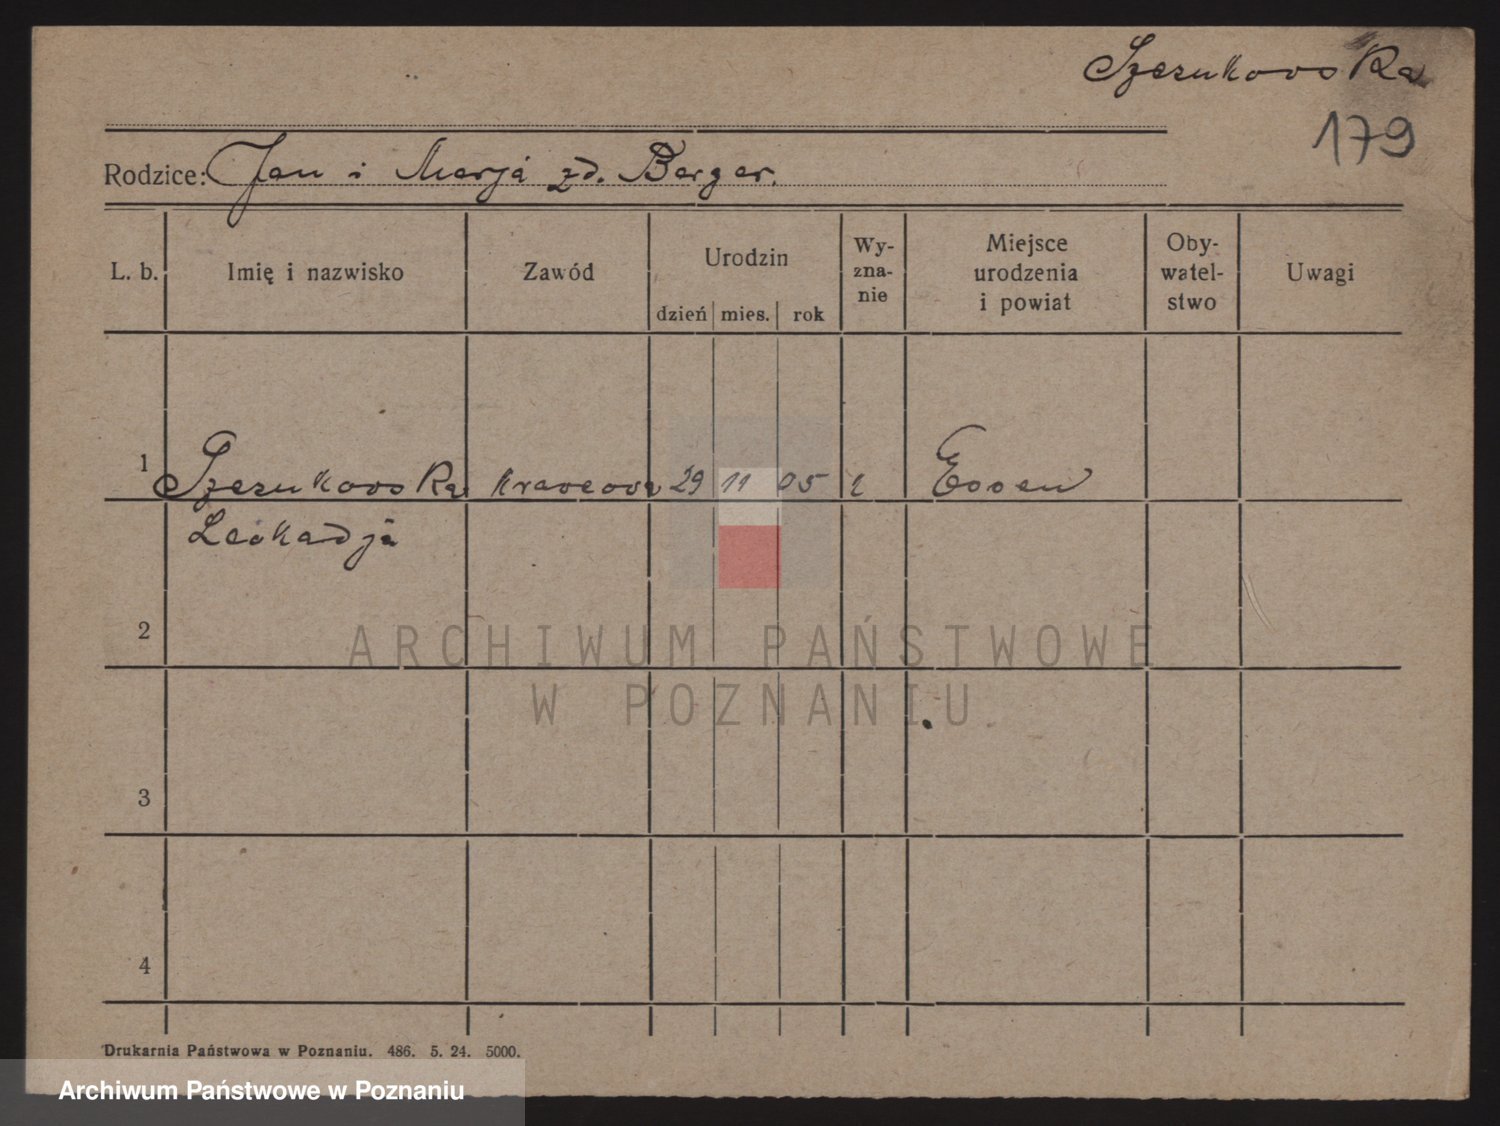 Szczukowska
179
Rodzice: Jan i Marja zd. Berger.
L. b. Imię i nazwisko Zawód Urodzin Wy-zna-nie Miejsce urodzenia i powiat Oby-watel-stwo Uwagi
dzień mies. rok
1 Szczukowska krawcowa 29 11 05 Essen
Leokadja
2
3
4
Drukarnia Państwowa w Poznaniu. 486. 5. 24. 5000.
ARCHIWUM PAŃSTWOWE
W POZNANIU
Archiwum Państwowe w Poznaniu